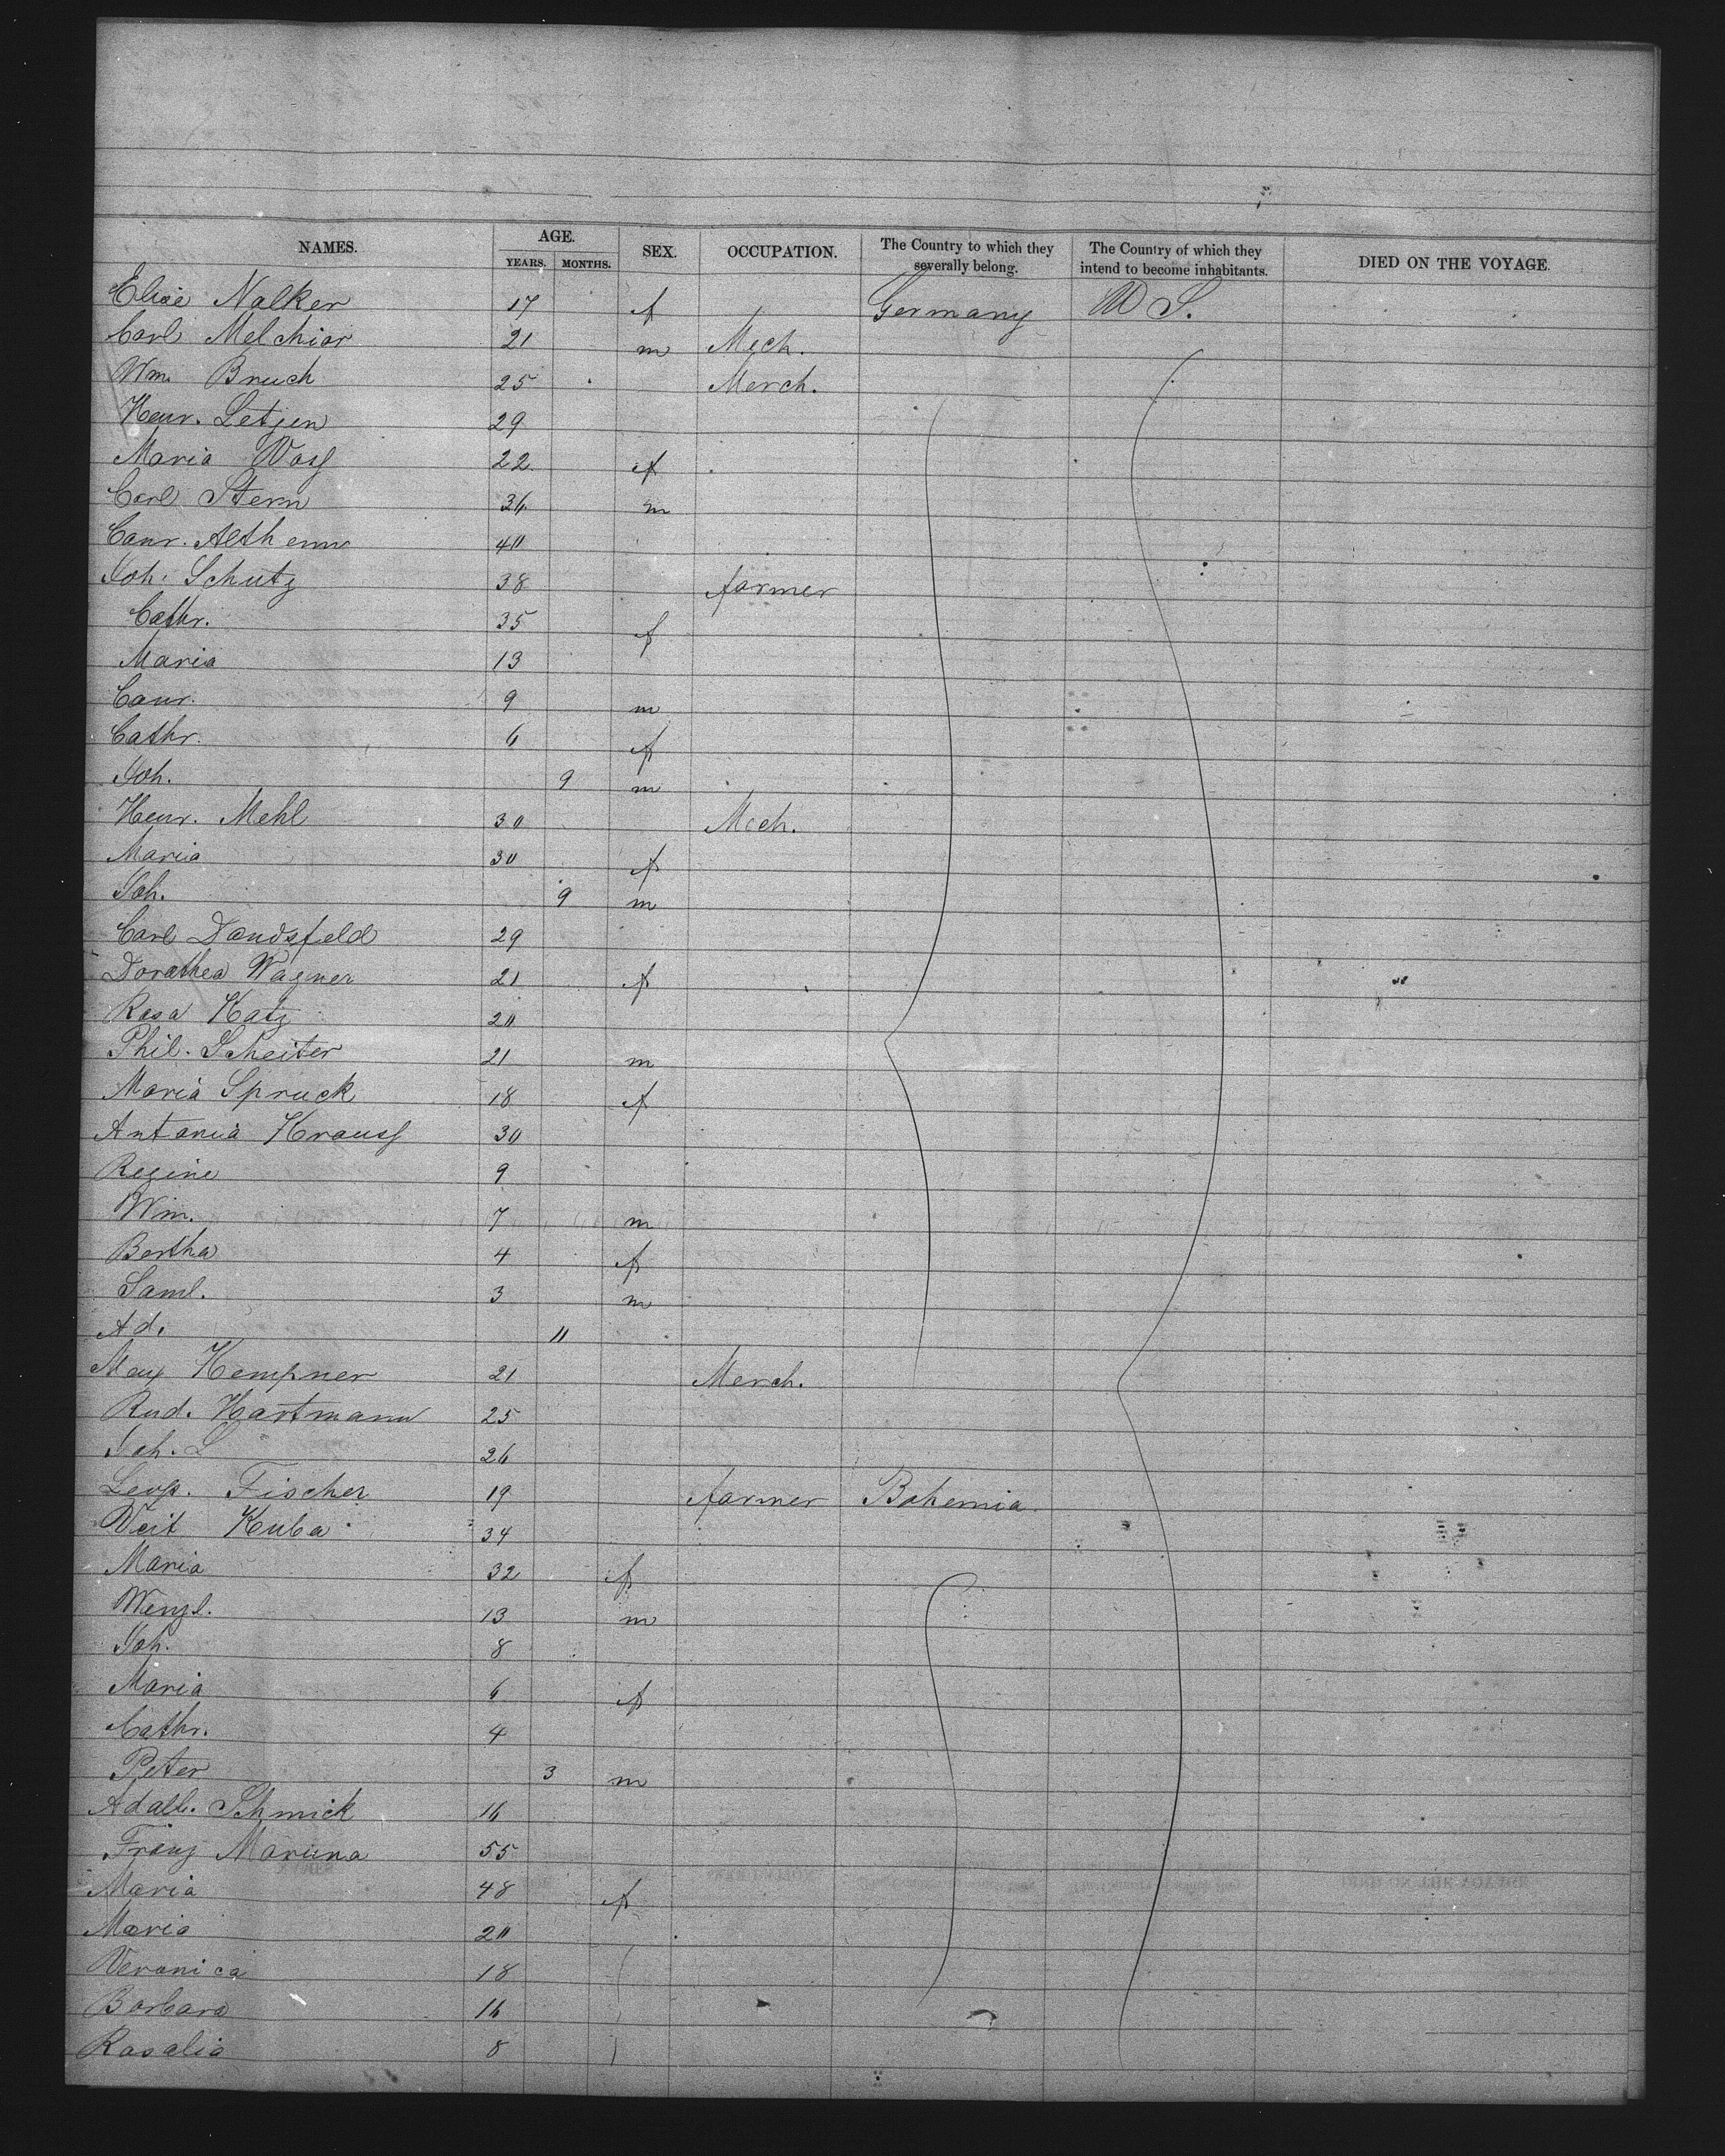 NAMES. AGE. YEARS. MONTHS. SEX. OCCUPATION. The Country to which they severally belong. The Country of which they intend to become inhabitants. DIED ON THE VOYAGE.
Elise Nalker 17 f Germany U S.
Carl Melchior 21 m Mech.
Wm. Bruch 25 Merch.
Henr. Letzen 29
Maria Voss 22 f
Carl Stern 36 m
Conr. Altheim 40
Joh. Schutz 38 farmer
Cathr. 35 f
Maria 13
Conr. 9 m
Cathr. 6 f
Joh. 9 m
Henr. Mehl 30 Mech.
Maria 30 f
Joh. 9 m
Carl Dandsfeld 29
Dorothea Wagner 21 f
Rosa Katz 20
Phil. Scheiter 21 m
Maria Spruck 18 f
Antonia Krauss 30
Regine 9
Wm. 7 m
Bertha 4 f
Saml. 3 m
Ad. 11
Max Kempner 21 Merch.
Rud. Hartmann 25
Joh. L 26
Leop. Fischer 19 farmer Bohemia
Veit Kuba 34
Maria 32 f
Wenzl. 13 m
Joh. 8
Maria 6 f
Cathr. 4
Peter 3 m
Adalb. Schmick 16
Franz Maruna 55
Maria 48 f
Maria 20
Veronica 18
Barbara 16
Rosalia 8